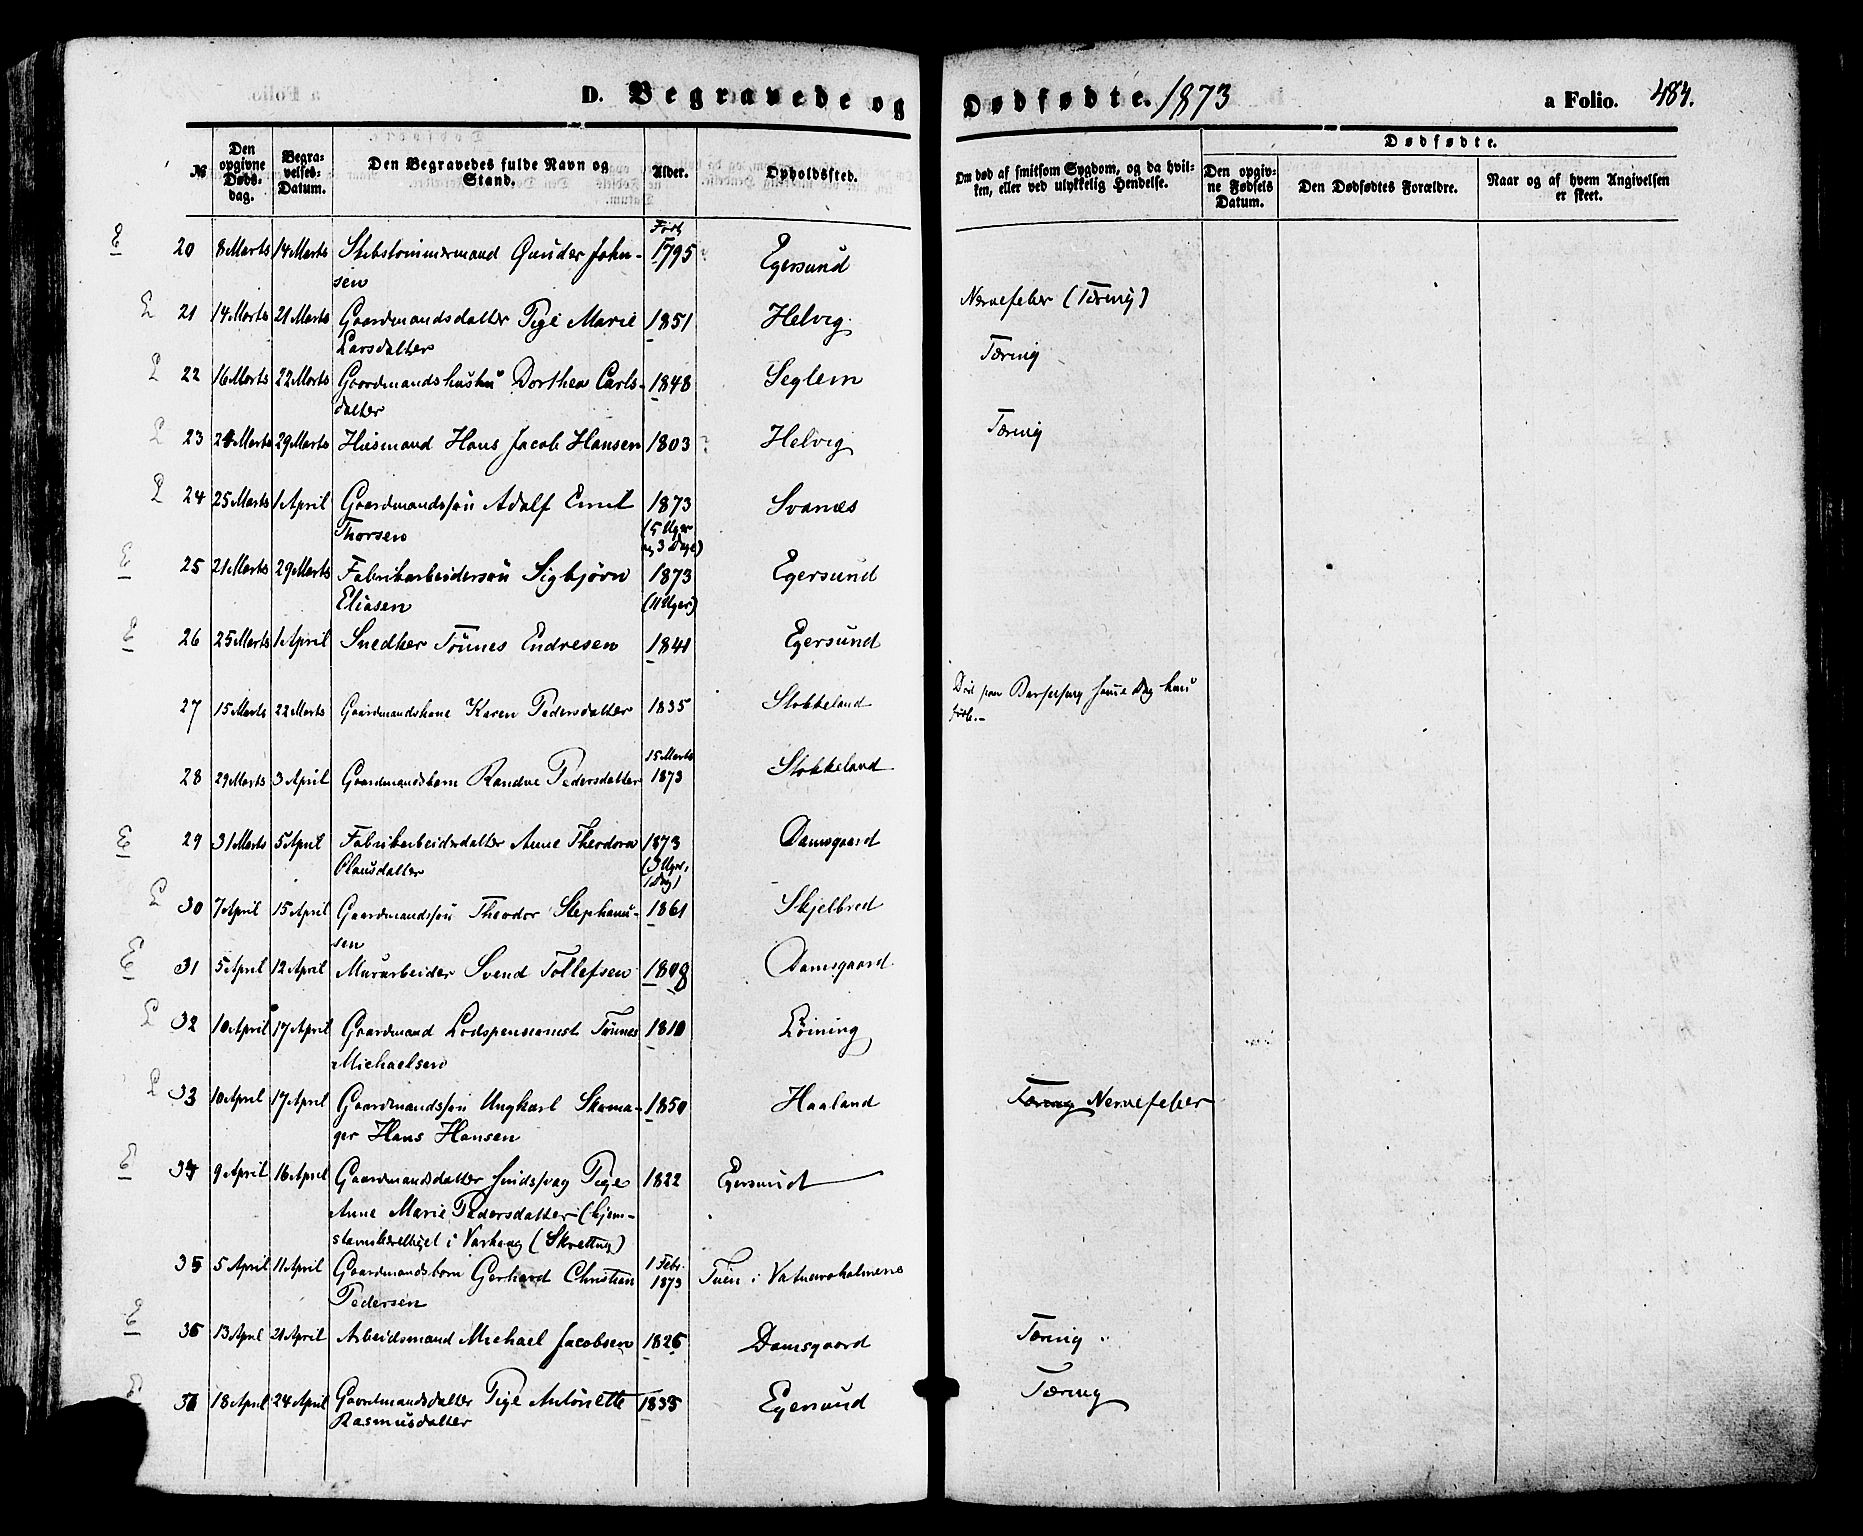 D. Begravede og Dødfødte. 1873 a Folio. 484.
№ Den opgivne Døds-dag. Begra-velses-Datum. Den Begravedes fulde Navn og Stand. Alder. Opholdsted. Om død af smitsom Sygdom, og da hvil-ken, eller ved ulykkelig Hendelse. Dødfødte. Den opgiv-ne Fødsels Datum. Den Dødfødtes Forældre. Naar og af hvem Angivelsen er skeet.
Født
E 20 8 Marts 14 Marts Gunder John- 1795 Egersund
sen
L 21 14 Marts 21 Marts Gaardmandsdatter Pige Marie 1851 Helvig Nervefeber (Tæring)
Larsdatter
L 22 16 Marts 22 Marts Gaardmandshustru Dorthea Carls- 1848 Seglem Tæring
datter
L 23 24 Marts 29 Marts Husmand Hans Jacob Hansen 1803 Helvig Tæring
L 24 25 Marts 1 April Gaardmandssøn Adolf Emil 1873 Svanæs
Thorsen (5 Uger
og 3 Dage)
E 25 21 Marts 29 Marts Fabrikarbeidersøn Sigbjørn 1873 Egersund
Eliasen (11 Uger)
E 26 25 Marts 1 April Snedker Tønnes Endresen 1841 Egersund
27 15 Marts 22 Marts Gaardmandskone Karen Pedersdatter 1835 Stokkeland Død paa Barselseng samme Dag hun
fødte.-
15 Marts
28 29 Marts 3 April Gaardmandsbarn Randve Pedersdatter 1873 Stokkeland
E 29 31 Marts 5 April Fabrikarbeiderdatter Anne Theodora 1873 Damsgaard
Olausdatter (3 Uger,
1 Dag)
L 30 7 April 15 April Gaardmandssøn Theodor Stephanu- 1861 Skjelbred
sen
E 31 5 April 12 April Murarbeider Svend Tollefsen 1808 Damsgaard
L 32 10 April 17 April Gaardmand Lodspensionist Tønnes 1810 Løining
Michaelsen
L 33 10 April 17 April Gaardmandssøn Ungkarl Skoma- 1850 Haaland Tæring Nervefeber
ger Hans Hansen
E 34 9 April 16 April Gaardmandsdatter sindssvag Pige 1822 Egersund
Anne Marie Pedersdatter (hjem-
stavnsberettiget i Varhoug (Skretting)
35 5 April 11 April Gaardmandsbarn Gerhard Christian 1 Febr. 1873 Tuen i Vatnemoholmene
Pedersen
E 36 13 April 21 April Arbeidsmand Michael Jacobsen 1826 Damsgaard Tæring
E 37 18 April 24 April Gaardmandsdatter Pige Antonette 1835 Egersund Tæring
Rasmusdatter